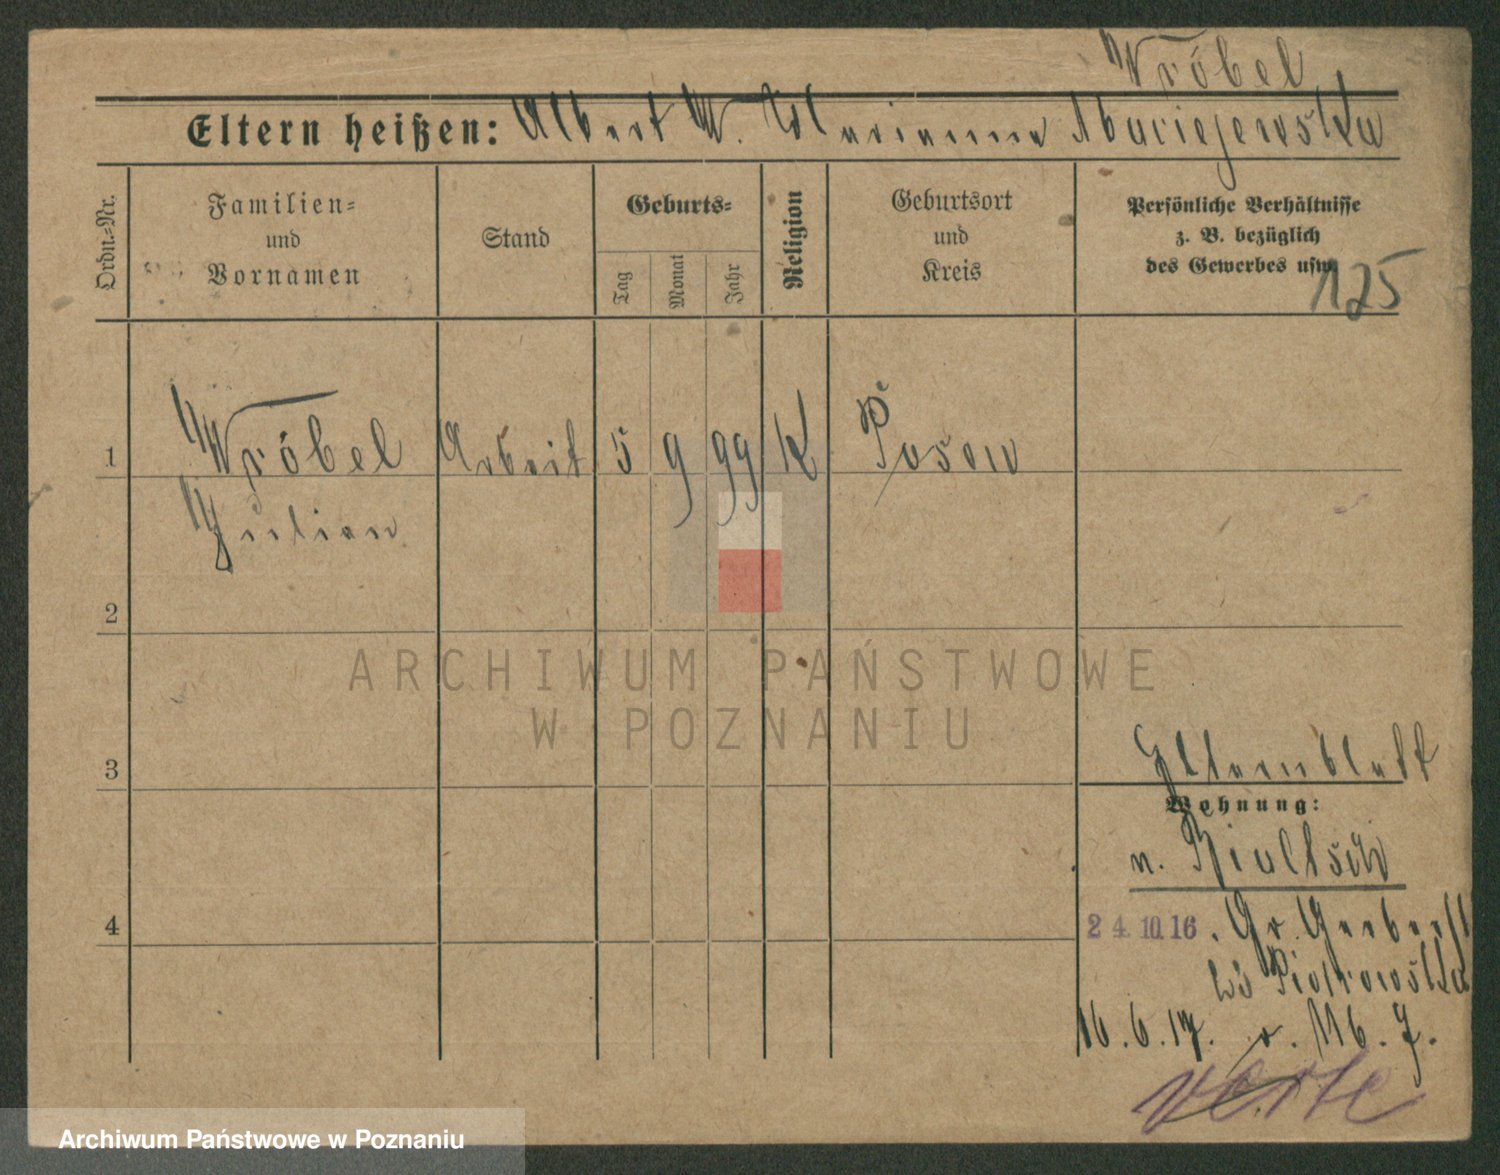 Wróbel
Eltern heißen: Albert W. Marianna Maciejewska
Ordn.-Nr.
Familien=
und
Vornamen
Stand
Geburts=
Tag
Monat
Jahr
Religion
Geburtsort
und
Kreis
Persönliche Verhältnisse
z. B. bezüglich
des Gewerbes usw.
125
1 Wróbel Arbeit 5 9 99 K Posen
Julian
2
ARCHIWUM PAŃSTWOWE
W POZNANIU
3
Elternblatt
Wohnung:
n.
4
24.10.16. Gr. Gerberst
bei Piotrowska
16.6.17. v. 116. J.
verte
Archiwum Państwowe w Poznaniu